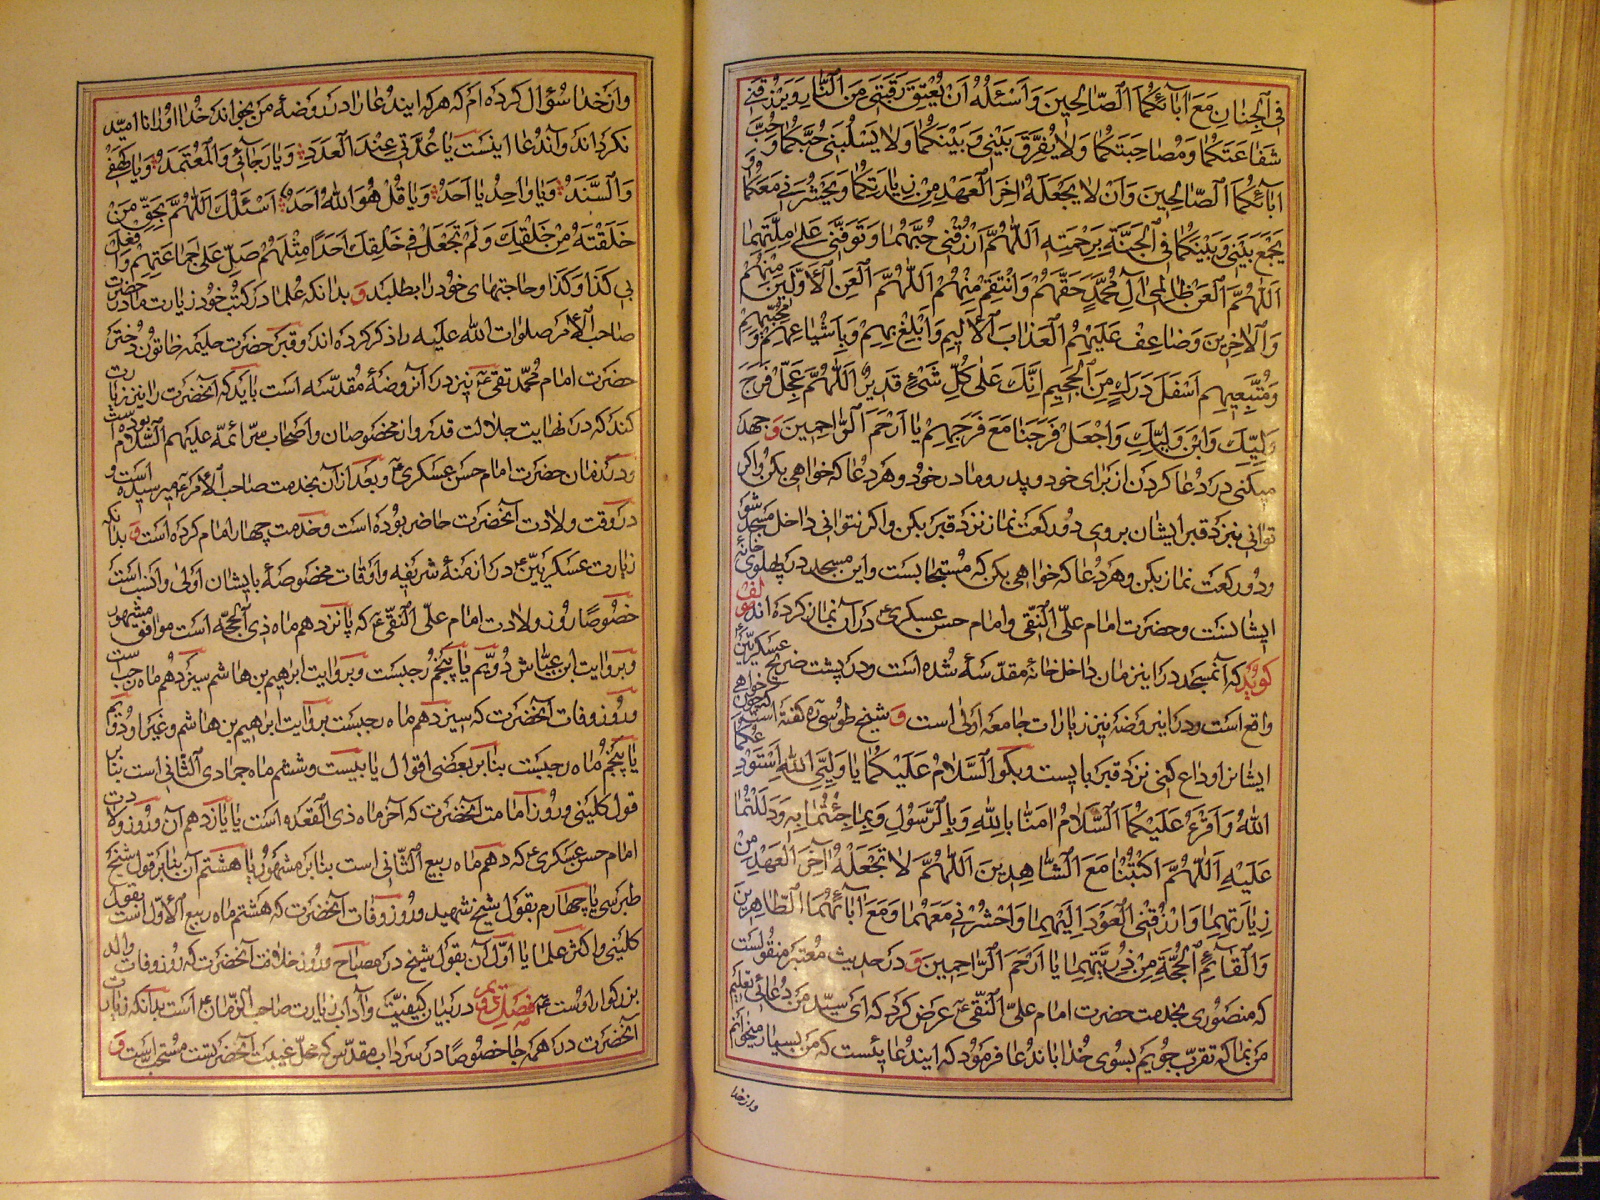 فِی الْجِنَانِ مَعَ اٰبَائِکُمَا الصَّالِحِینَ وَاَسْئَلُهُ اَنْ یُعْتِقَ رَقَبَتِی مِنَ النَّارِ وَیَرْزُقَنِی
شَفَاعَتَکُمَا وَمُصَاحَبَتَکُمَا وَلَا یُفَرِّقَ بَیْنِی وَبَیْنَکُمَا وَلَا یَسْلُبَنِی حُبَّکُمَا وَحُبَّ
اٰبَائِکُمَا الصَّالِحِینَ وَاَنْ لَا یَجْعَلَهُ اٰخِرَ الْعَهْدِ مِنْ زِیَارَتِکُمَا وَیَحْشُرَنِی مَعَکُمَا
یَجْمَعَ بَیْنِی وَبَیْنَکُمَا فِی الْجَنَّةِ بِرَحْمَتِهِ اَللّٰهُمَّ ارْزُقْنِی حُبَّهُمَا وَتَوَفَّنِی عَلٰی مِلَّتِهِمَا
اَللّٰهُمَّ الْعَنْ ظَالِمِی اٰلِ مُحَمَّدٍ حَقَّهُمْ وَانْتَقِمْ مِنْهُمْ اَللّٰهُمَّ الْعَنِ الْاَوَّلِینَ مِنْهُمْ
وَالْاٰخِرِینَ وَضَاعِفْ عَلَیْهِمُ الْعَذَابَ الْاَلِیمَ وَابْلُغْ بِهِمْ وَبِاَشْیَاعِهِمْ وَمُحِبِّیهِمْ
وَمُتَّبِعِیهِمْ اَسْفَلَ دَرَكٍ مِنَ الْجَحِیمِ اِنَّكَ عَلٰی کُلِّ شَیْءٍ قَدِیرٌ اَللّٰهُمَّ عَجِّلْ فَرَجَ
وَلِیِّكَ وَابْنِ وَلِیِّكَ وَاجْعَلْ فَرَجَنَا مَعَ فَرَجِهِمْ یَا اَرْحَمَ الرَّاحِمِینَ وجهد
میکنی در دعا کردن از برای خود و پدر و مادر خود و هر دعا که خواهی بکن و اکر
توانی نیز نزد قبر ایشان بروی دو رکعت نماز نزد قبر بکن و اکر نتوانی داخل مسجد شو
و دو رکعت نماز بکن و هر دعا که خواهی بکن که مستجابست و این مسجد در پهلوی خانهٔ
ایشانست و حضرت امام علی النّقی و امام حسن عسکری ع در آن نماز کرده اند مؤلف
کوید که آن مسجد در این زمان داخل خانهٔ مقدّسه شده است و در پشت ضریح عسکریین
واقع است و در این روضه نیز زیارات جامعه اولی است و شیخ طوسی ره کفته است که چون خواهی
ایشانرا وداع کنی نزد قبر بایست و بکو اَلسَّلَامُ عَلَیْکُمَا یَا وَلِیَّیِ اللّٰهِ اَسْتَوْدِعُکُمَا
اللّٰهَ وَاَقْرَءُ عَلَیْکُمَا السَّلَامُ اٰمَنَّا بِاللّٰهِ وَبِالرَّسُولِ وَبِمَا جِئْتُمَا بِهِ وَدَلَلْتُمَا
عَلَیْهِ اَللّٰهُمَّ اکْتُبْنَا مَعَ الشَّاهِدِینَ اَللّٰهُمَّ لَا تَجْعَلْهُ اٰخِرَ الْعَهْدِ مِنْ
زِیَارَتِهِمَا وَارْزُقْنِی الْعَوْدَ اِلَیْهِمَا وَاحْشُرْنِی مَعَهُمَا وَمَعَ اٰبَائِهِمَا الطَّاهِرِینَ
وَالْقَائِمِ الْحُجَّةِ مِنْ ذُرِّیَّتِهِمَا یَا اَرْحَمَ الرَّاحِمِینَ و در حدیث معتبر منقولست
که منصوری بخدمت حضرت امام علی النّقی ع عرض کرد که ای سیّد من دعائی تعلیم
من نما که تقرّب جویم بسوی خدا باندعا فرمود که ایندعائیست که من بسیار میخوانم
و از خدا
و از خدا سؤال کرده ام که هر که ایندعا را در روضهٔ من بخواند خدا او را نا امید
نکرداند و آندعا اینست یَا عُدَّتِی عِنْدَ الْعَدَدِ وَیَا رَجَائِی وَالْمُعْتَمَدُ وَیَا کَهْفِی
وَالسَّنَدُ وَیَا وَاحِدُ یَا اَحَدُ وَیَا قُلْ هُوَ اللّٰهُ اَحَدٌ اَسْئَلُكَ اللّٰهُمَّ بِحَقِّ مَنْ
خَلَقْتَهُ مِنْ خَلْقِكَ وَلَمْ تَجْعَلْ فِی خَلْقِكَ اَحَدًا مِثْلَهُمْ صَلِّ عَلٰی جَمَاعَتِهِمْ وَافْعَلْ
بِی کَذَا وَکَذَا و حاجتهای خود را بطلبد و بدانکه علما در کتب خود زیارت مادر حضرت
صاحب الامر صلوات الله علیه را ذکر کرده اند و قبر حضرت حلیمه خاتون دختر
حضرت امام محمّد تقی ع نیز در آن روضهٔ مقدّسه است باید که آنحضرت را نیز زیارت
کنند که در نهایت جلالت قدر و از مخصوصان و اصحاب سرّ ائمه علیهم السّلام بوده است
و در زمان حضرت امام حسن عسکری ع و بعد از آن بخدمت صاحب الامر ع میرسیده است و
در وقت ولادت آنحضرت حاضر بوده است و خدمت چهار امام کرده است و بدانکه
زیارت عسکریین ع در ازمنهٔ شریفه و اوقات مخصوصهٔ بایشان اولی و انسب است
خصوصًا روز ولادت امام علی النّقی ع که پانزدهم ماه ذی الحجّه است موافق مشهور
و بروایت ابن عیّاش دویّم یا پنجم رجبست و بروایت ابراهیم بن هاشم سیزدهم ماه رجب است
و روز وفات آنحضرت که سیزدهم ماه رجبست بروایت ابراهیم بن هاشم و غیر او
یا پنجم ماه رجبست بنابر بعضی اقوال یا بیست و ششم ماه جمادی الثانی است بنابر
قول کلینی و روز امامت آنحضرت که آخر ماه ذی القعده است یا یازدهم آن و روز ولادت
امام حسن عسکری ع که دهم ماه ربیع الثّانی است بنابر مشهور یا هشتم آن بنابر قول شیخ
طبرسی یا چهارم بقول شیخ شهید و روز وفات آنحضرت که هشتم ماه ربیع الاوّل است بقول
کلینی و اکثر علما یا اوّل آن بقول شیخ در مصباح و روز خلافت آنحضرت که روز وفات والد
بزرکوار اوست ع فصل در بیان کیفیّت و آداب زیارت صاحب الزّمان ع است بدانکه زیارت
آنحضرت در همه جا خصوصًا در سرداب مقدّس که محلّ غیبت آنحضرتست مستحب است و